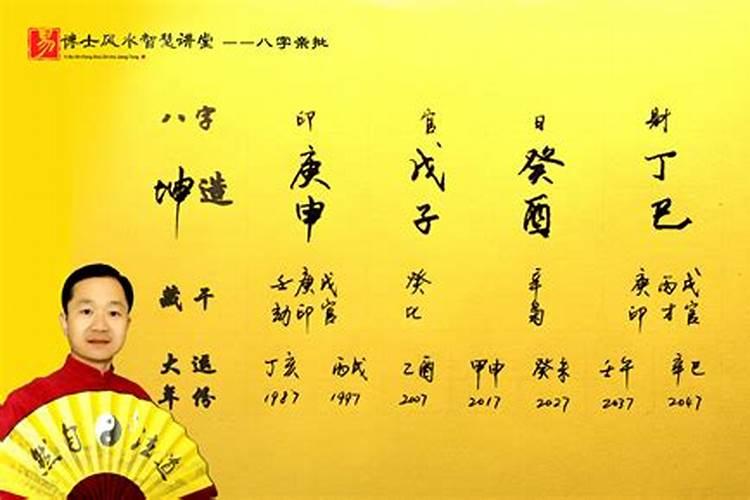 易 博士风水智慧讲堂 ——八字亲批
八字 印 官 日 财
坤造 庚申 戊子 癸酉 丁巳
藏干 壬庚戊 癸 辛 庚丙戊
劫印官 比 枭 印才官
大运 丁亥 丙戌 乙酉 甲申 癸未 壬午 辛巳
年份 1987 1997 2007 2017 2027 2037 2047
然自法道